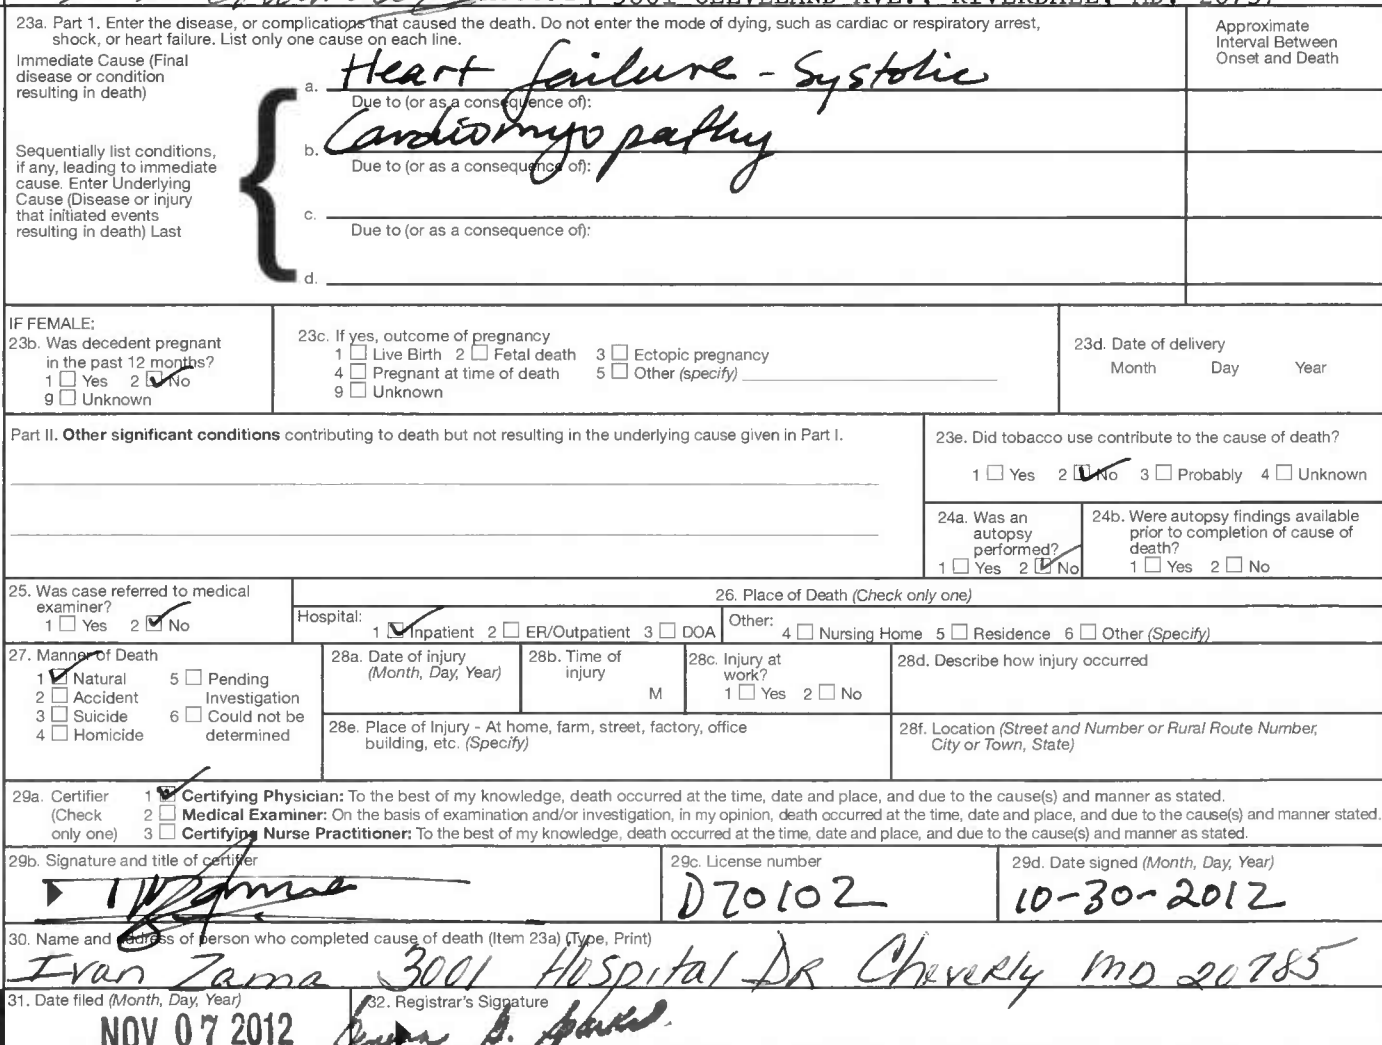 3001 CLEVELAND AVE., RIVERDALE, MD. 20737
23a. Part 1. Enter the disease, or complications that caused the death. Do not enter the mode of dying, such as cardiac or respiratory arrest,
shock, or heart failure. List only one cause on each line.
Approximate
Interval Between
Onset and Death
Immediate Cause (Final
disease or condition
resulting in death)
a. Heart failure - Systolic
Due to (or as a consequence of):
Sequentially list conditions,
if any, leading to immediate
cause. Enter Underlying
Cause (Disease or injury
that initiated events
resulting in death) Last
b. Cardiomyopathy
Due to (or as a consequence of):
c.
Due to (or as a consequence of):
d.
IF FEMALE:
23b. Was decedent pregnant
in the past 12 months?
1 ☐ Yes 2 ☑ No
9 ☐ Unknown
23c. If yes, outcome of pregnancy
1 ☐ Live Birth 2 ☐ Fetal death 3 ☐ Ectopic pregnancy
4 ☐ Pregnant at time of death 5 ☐ Other (specify)
9 ☐ Unknown
23d. Date of delivery
Month Day Year
Part II. Other significant conditions contributing to death but not resulting in the underlying cause given in Part I.
23e. Did tobacco use contribute to the cause of death?
1 ☐ Yes 2 ☑ No 3 ☐ Probably 4 ☐ Unknown
24a. Was an
autopsy
performed?
1 ☐ Yes 2 ☑ No
24b. Were autopsy findings available
prior to completion of cause of
death?
1 ☐ Yes 2 ☐ No
25. Was case referred to medical
examiner?
1 ☐ Yes 2 ☑ No
26. Place of Death (Check only one)
Hospital:
1 ☑ Inpatient 2 ☐ ER/Outpatient 3 ☐ DOA
Other:
4 ☐ Nursing Home 5 ☐ Residence 6 ☐ Other (Specify)
27. Manner of Death
1 ☑ Natural 5 ☐ Pending
2 ☐ Accident Investigation
3 ☐ Suicide 6 ☐ Could not be
4 ☐ Homicide determined
28a. Date of injury
(Month, Day, Year)
28b. Time of
injury
M
28c. Injury at
work?
1 ☐ Yes 2 ☐ No
28d. Describe how injury occurred
28e. Place of Injury - At home, farm, street, factory, office
building, etc. (Specify)
28f. Location (Street and Number or Rural Route Number,
City or Town, State)
29a. Certifier
(Check
only one)
1 ☑ Certifying Physician: To the best of my knowledge, death occurred at the time, date and place, and due to the cause(s) and manner as stated.
2 ☐ Medical Examiner: On the basis of examination and/or investigation, in my opinion, death occurred at the time, date and place, and due to the cause(s) and manner stated.
3 ☐ Certifying Nurse Practitioner: To the best of my knowledge, death occurred at the time, date and place, and due to the cause(s) and manner as stated.
29b. Signature and title of certifier
29c. License number
D70102
29d. Date signed (Month, Day, Year)
10-30-2012
30. Name and address of person who completed cause of death (Item 23a) (Type, Print)
Ivan Zama 3001 Hospital DR Cheverly MD 20785
31. Date filed (Month, Day, Year)
NOV 07 2012
32. Registrar's Signature